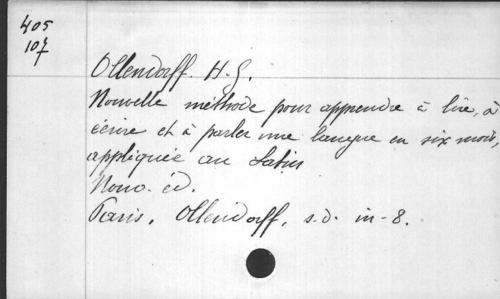 405
107
Ollendorff. H. G.
Nouvelle méthode pour apprendre à lire, à
écrire et à parler une langue en six mois,
appliquée au Latin
Nouv. éd.
Paris, Ollendorff, s.d. in-8.